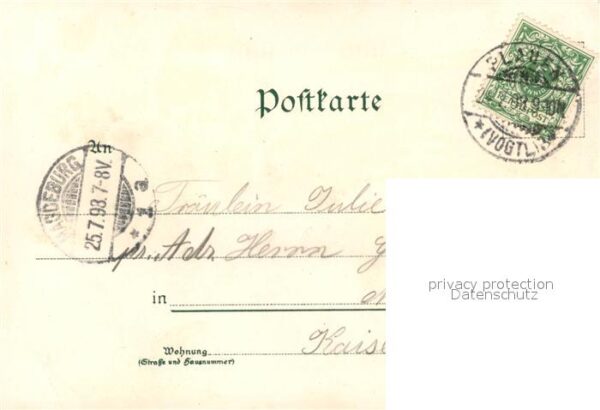 PLAUEN
(VOGTL.)
Postkarte
An
MAGDEBURG
25.7.98.7-8V.
1 a
Fräulein Julie
pr. Adr. Herrn G
privacy protection
Datenschutz
in
Wohnung
(Straße und Hausnummer)
Kaise